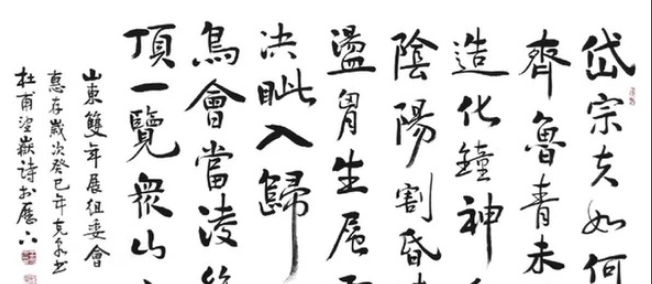 岱宗夫如何
齊魯青未
造化鐘神
陰陽割昏
盪胷生層
決眦入歸
鳥會當凌
頂一覽衆山
山東雙年展組委會
惠存歲次癸巳年
杜甫望嶽詩於歷下